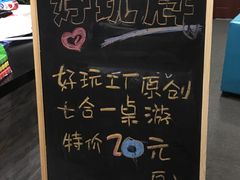 好玩
好玩工厂原创
七合一桌游
特价20元